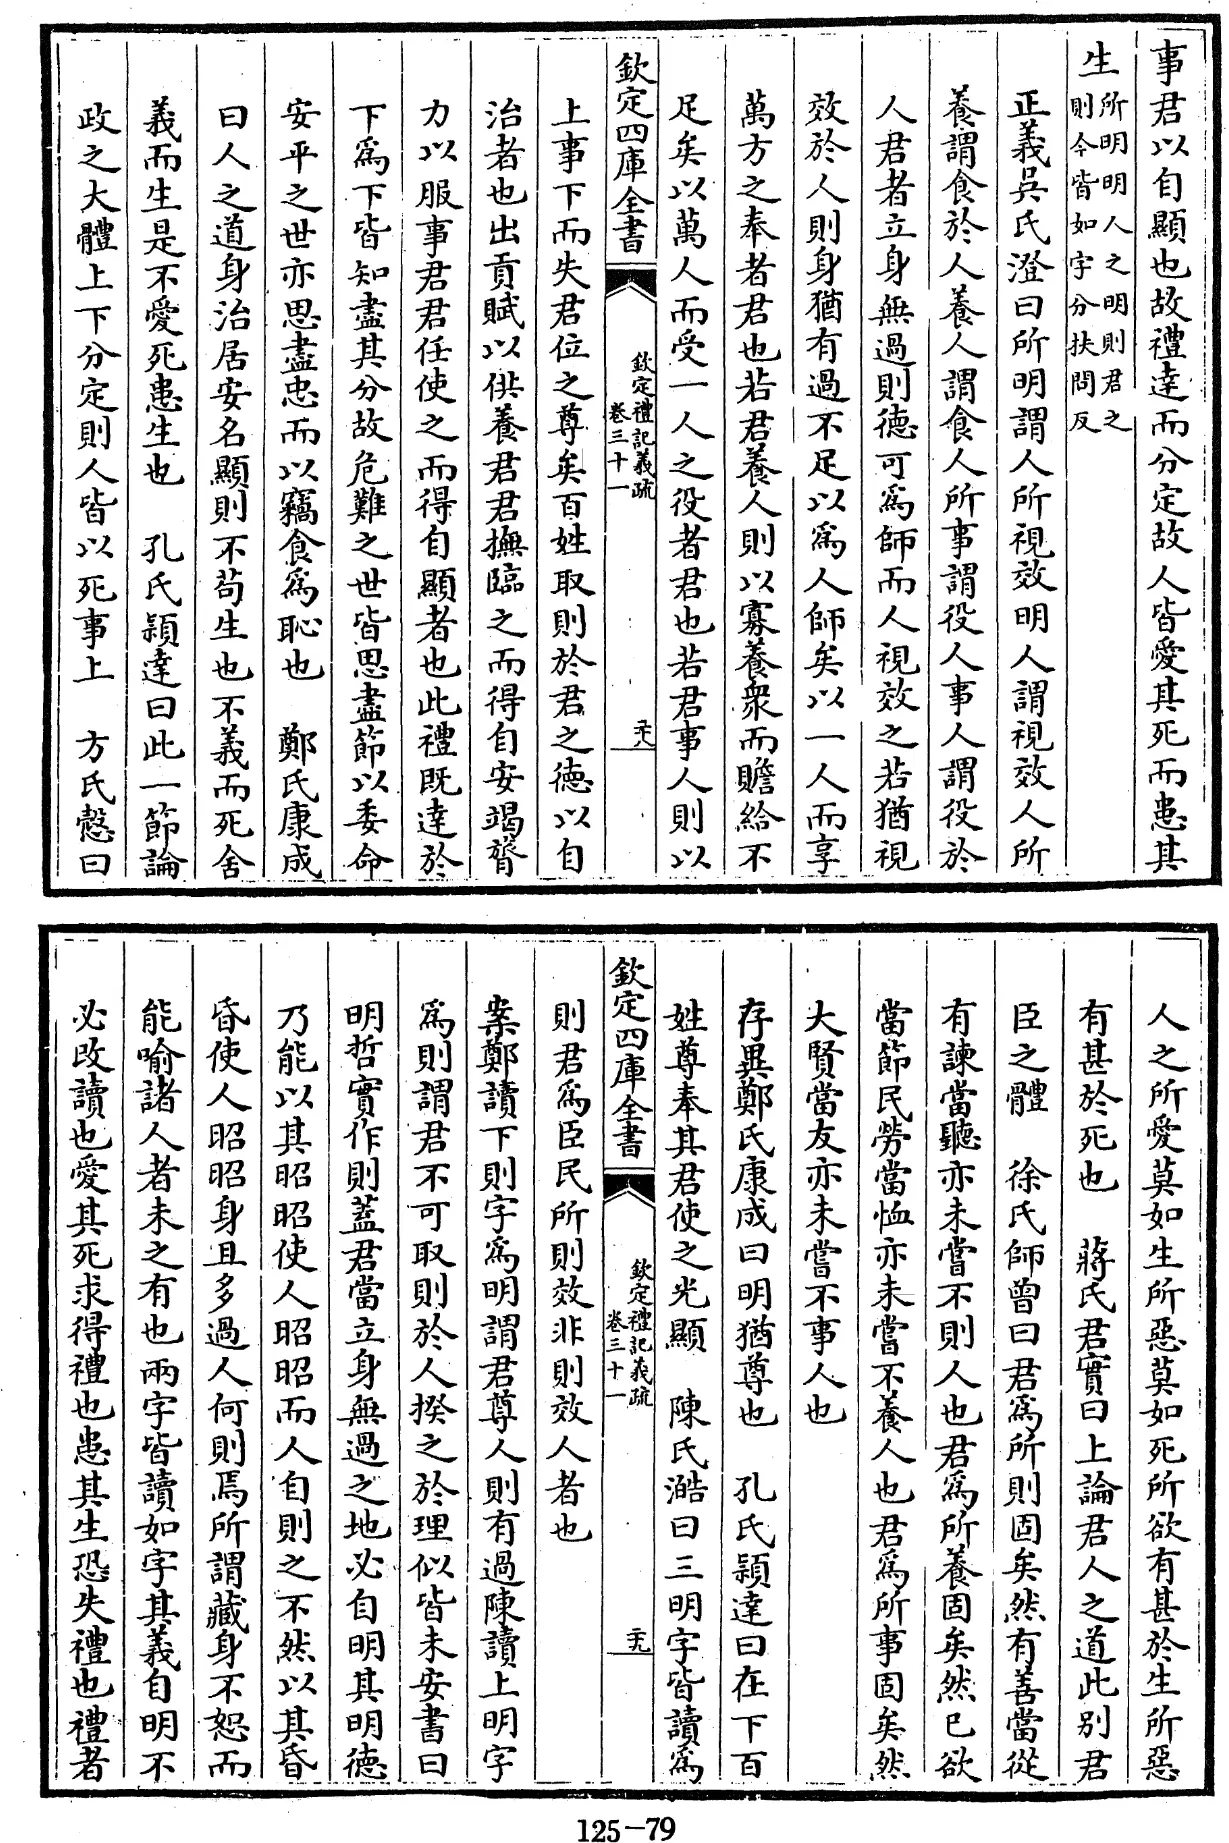 事君以自顯也故禮達而分定故人皆愛其死而患其
生所明明人之明則君之
則今皆如字分扶問反
正義吳氏澄曰所明謂人所視效明人謂視效人所
養謂食於人養人謂食人所事謂役人事人謂役於
人君者立身無過則德可爲師而人視效之若猶視
效於人則身猶有過不足以爲人師矣以一人而享
萬方之奉者君也若君養人則以寡養衆而贍給不
足矣以萬人而受一人之役者君也若君事人則以
欽定四庫全書
欽定禮記義疏
卷三十一
二十八
上事下而失君位之尊矣百姓取則於君之德以自
治者也出貢賦以供養君君撫臨之而得自安竭膂
力以服事君君任使之而得自顯者也此禮既達於
下爲下皆知盡其分故危難之世皆思盡節以委命
安平之世亦思盡忠而以竊食爲恥也　鄭氏康成
曰人之道身治居安名顯則不苟生也不義而死舍
義而生是不愛死患生也　孔氏穎達曰此一節論
政之大體上下分定則人皆以死事上　方氏慤曰
人之所愛莫如生所惡莫如死所欲有甚於生所惡
有甚於死也　蔣氏君實曰上論君人之道此别君
臣之體　徐氏師曾曰君爲所則固矣然有善當從
有諫當聽亦未嘗不則人也君爲所養固矣然已欲
當節民勞當恤亦未嘗不養人也君爲所事固矣然
大賢當友亦未嘗不事人也
存異鄭氏康成曰明猶尊也　孔氏穎達曰在下百
姓尊奉其君使之光顯　陳氏澔曰三明字皆讀爲
欽定四庫全書
欽定禮記義疏
卷三十一
二十九
則君爲臣民所則效非則效人者也
案鄭讀下則字爲明謂君尊人則有過陳讀上明字
爲則謂君不可取則於人揆之於理似皆未安書曰
明哲實作則蓋君當立身無過之地必自明其明德
乃能以其昭昭使人昭昭而人自則之不然以其昏
昏使人昭昭身且多過人何則焉所謂藏身不恕而
能喻諸人者未之有也兩字皆讀如字其義自明不
必改讀也愛其死求得禮也患其生恐失禮也禮者
125-79